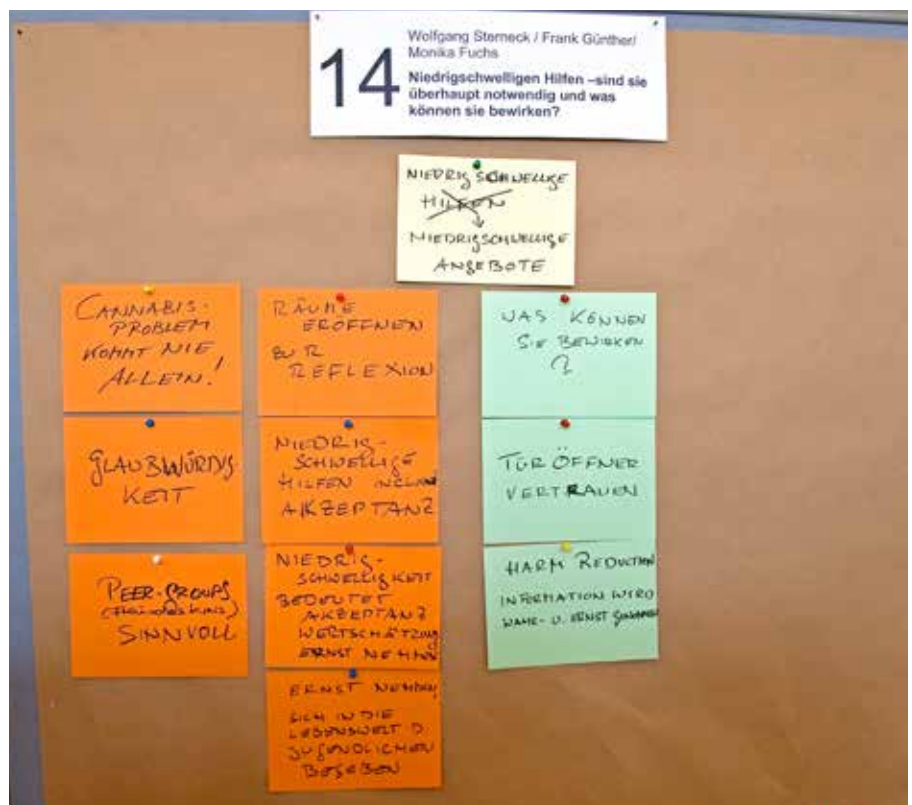 14
Wolfgang Sterneck / Frank Günther/
Monika Fuchs
Niedrigschwelligen Hilfen –sind sie
überhaupt notwendig und was
können sie bewirken?
NIEDRIGSCHWELLIGE
HILFEN
NIEDRIGSCHWELLIGE
ANGEBOTE
CANNABIS-
PROBLEM
KOMMT NIE
ALLEIN!
GLAUBWÜRDIG
KEIT
PEER-GROUPS
SINNVOLL
RÄUME
ERÖFFNEN
ZUR
REFLEXION
NIEDRIG-
SCHWELLIGE
HILFEN
AKZEPTANZ
NIEDRIG-
SCHWELLIGKEIT
BEDEUTET
AKZEPTANZ
WERTSCHÄTZUNG
ERNST NEHMEN
ERNST NEHMEN,
SICH IN DIE
LEBENSWELT D
JUGENDLICHEN
BEGEBEN
WAS KÖNNEN
SIE BEWIRKEN
?
TÜRÖFFNER
VERTRAUEN
HARM REDUCTION
INFORMATION WIRD
WAHR- U. ERNST GENOMMEN